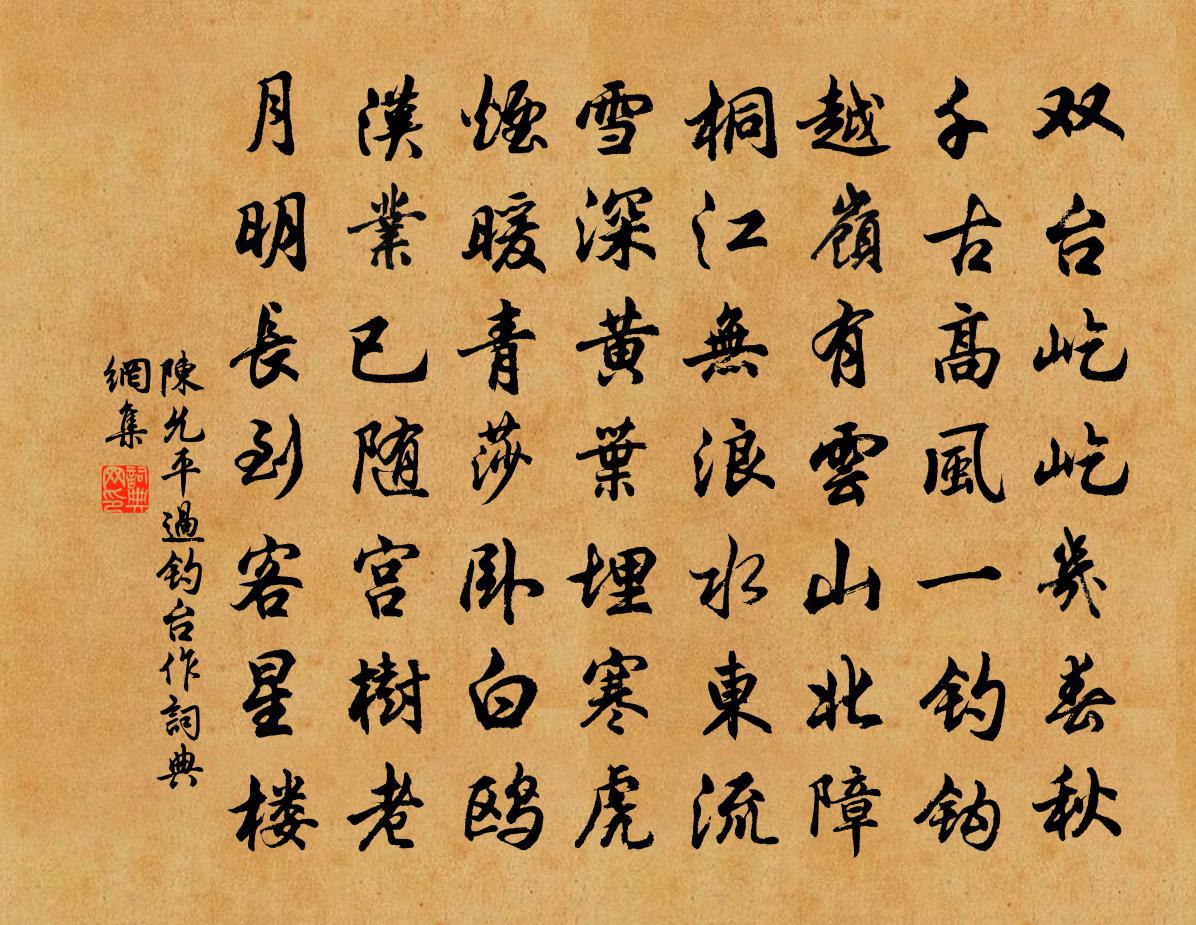 双台屹屹幾春秋
千古高風一釣鈎
越嶺有雲山北障
桐江無浪水東流
雪深黄葉埋寒虎
煙暖青莎卧白鸥
漢業已随宫樹老
月明長到客星楼
陳允平過釣台作詞典
網集
詞典
网印